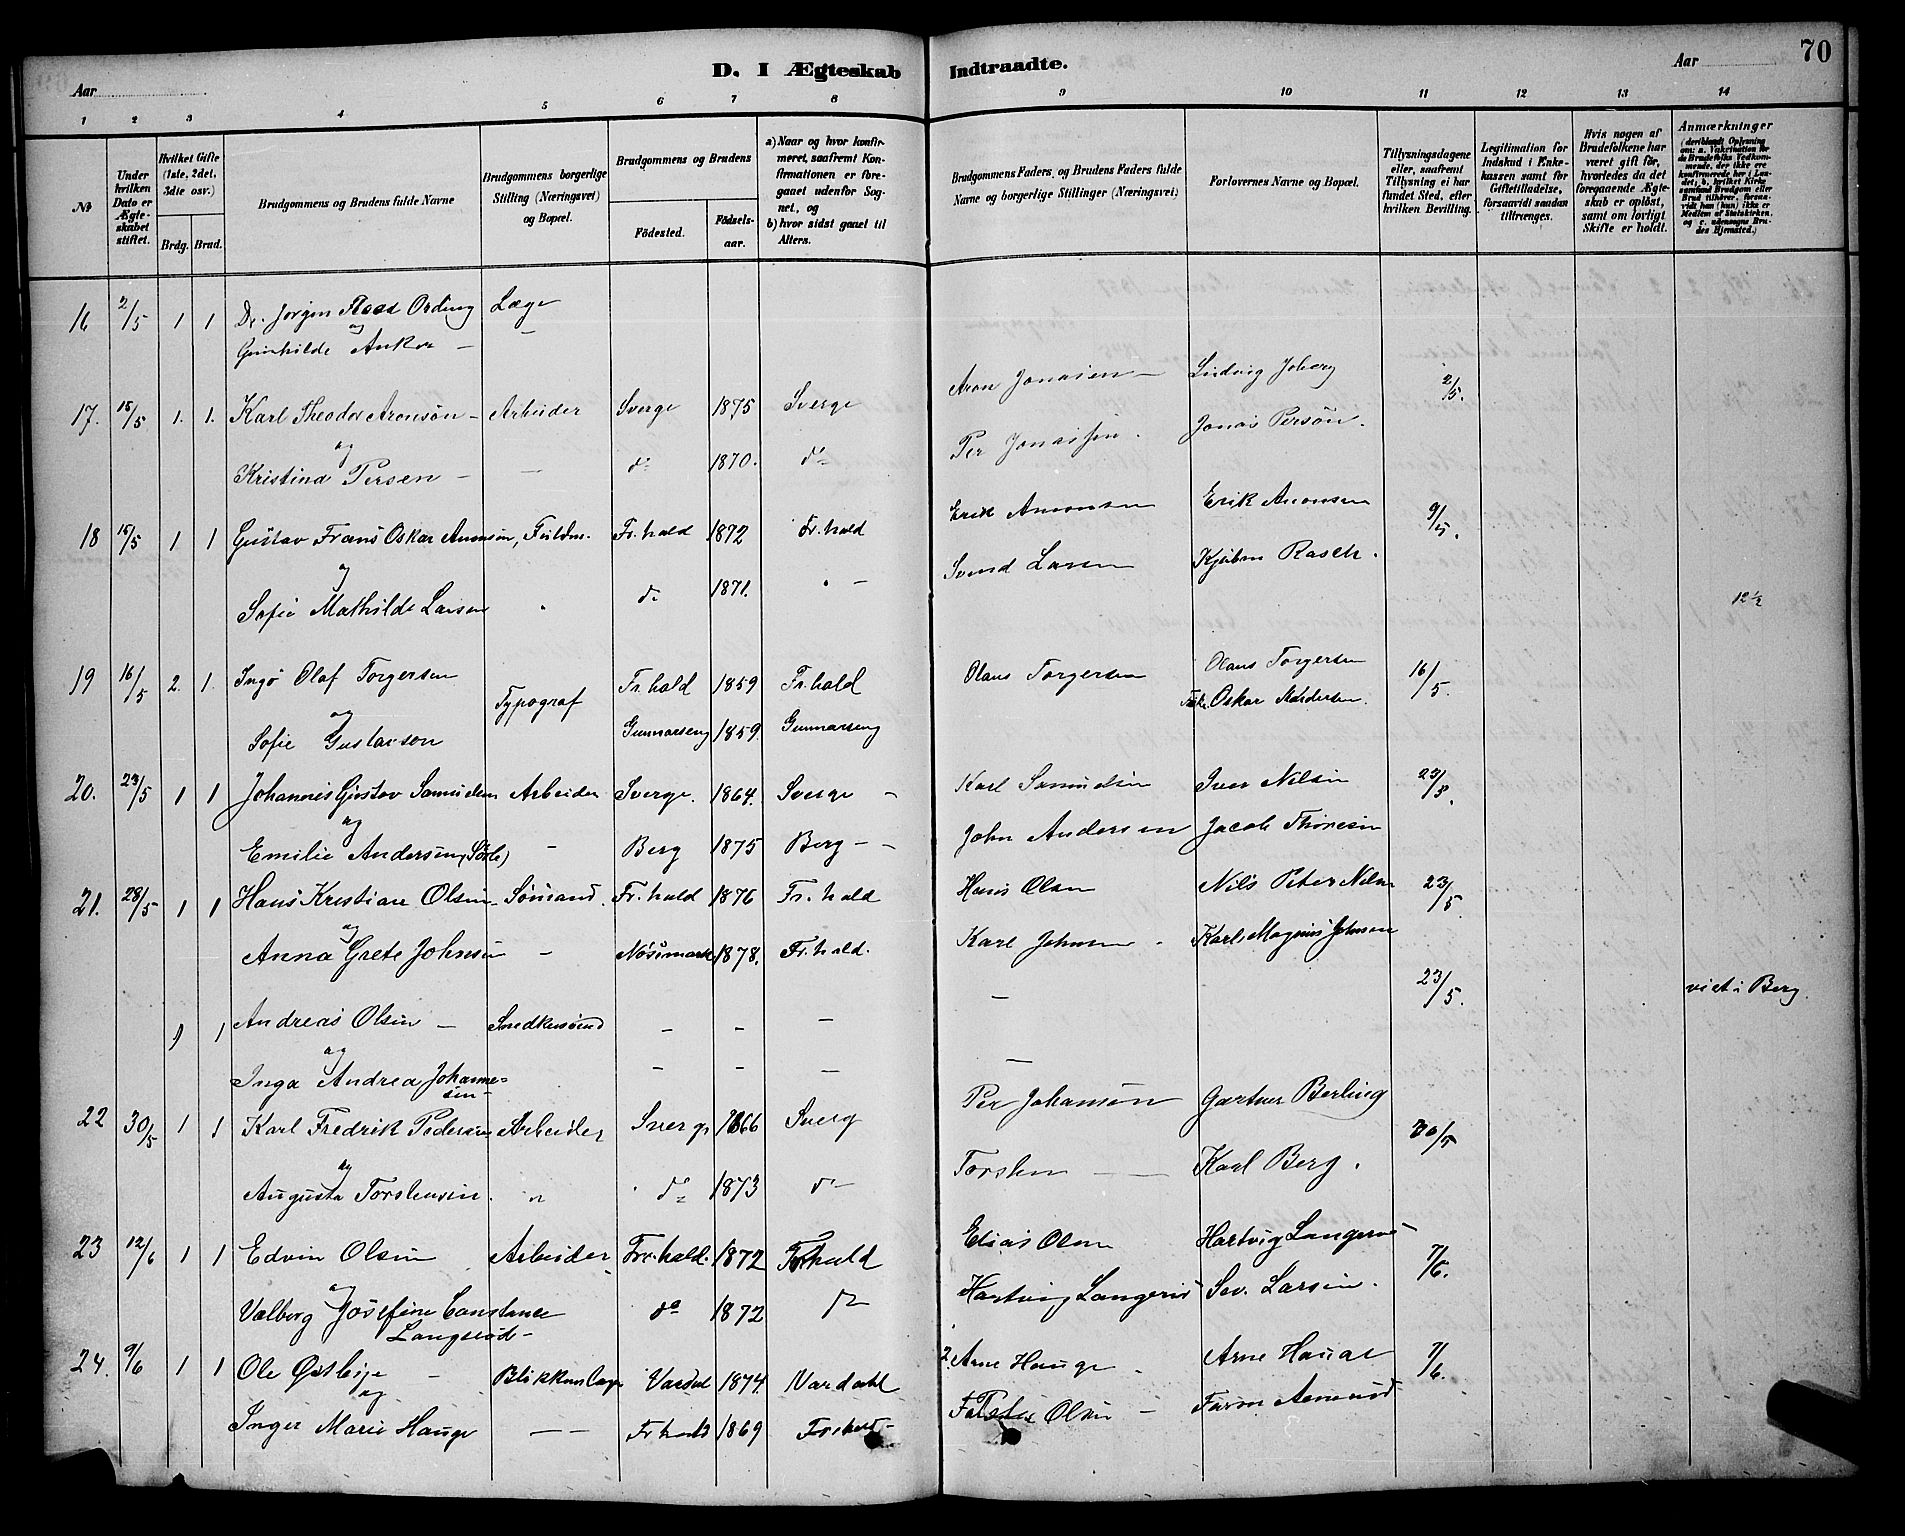 D. I Ægteskab Indtraadte.
70
Aar
Aar
1 2 3 4 5 6 7 8 9 10 11 12 13 14
№
Under hvilken Dato er Ægteskabet stiftet.
Hvilket Gifte (1ste, 2det, 3die osv.)
Brdg. Brud.
Brudgommens og Brudens fulde Navne
Brudgommens borgerlige Stilling (Næringsvei) og Bopæl.
Brudgommens og Brudens
Födested. Födselsaar.
a) Naar og hvor konfirmeret, saafremt Konfirmationen er foregaaet udenfor Sognet, og
b) hvor sidst gaaet til Alters.
Brudgommens Faders og Brudens Faders fulde Navne og borgerlige Stillinger (Næringsvei)
Forlovernes Navne og Bopæl.
Tillysningsdagene eller, saafremt Tillysning ei har fundet Sted, efter hvilken Bevilling.
Legitimation for Indskud i Enkekassen samt for Giftetilladelse, forsaavidt saadan tiltrænges.
Hvis nogen af Brudefolkene har været gift før, hvorledes da det foregaaende Ægteskab er oplöst, samt om lovligt Skifte er holdt.
Anmærkninger
16 2/5 1 1 Dr. Jørgen Ording Læge
og
Gunhilde Anker — —
17. 15/5 1. 1. Karl Theodor Aronsøn — Arbeider Sverge 1875 Sverge Aron Jonasen — Ludvig Joberg 2/5.
og
Kristina Persen — — do 1870. do Per Jonassen. Jonas Persøn.
18 15/5 1 1 Gustav Frans Oskar Fr.hald 1872 Fr.hald Erik Erik 9/5.
og
Sofie Mathilde Larsen do 1871. — Svend Larsen Kjøbm Rasch. 12½
19 16/5 2. 1. Ingo Olaf Torgersen Typograf Fr.hald 1859 Fr.hald Olaus Torgersen Olaus Torgersen 16/5.
og
Sofie Gustavson Gunnarseng 1859. Gunnarseng Oskar Andersen.
20. 23/5 1 1 Johannes Gustav Samuelsen Arbeider Sverge. 1864. Sverge — Karl Samuelsen Iver Nilsen
og
Emilie Andersen — Berg 1875 Berg — — John Andersen Jacob Thoresen
21. 28/5 1 1 Hans Kristian Olsen Sømand. Fr.hald 1876 Fr.hald Hans Olsen Nils Peter Nilsen 23/5.
og
Anna Grete Johnsen — 1878. Fr.hald. Karl Johnsen Karl Magnus Johnsen
1 1 Andreas Olsen — Snedkersvend — — — — 23/5. viet i Berg.
og
Inga Andrea Johannesen — — — —
22 30/5 1 1 Karl Fredrik Pedersen Arbeider Sverg 1866 Sverg Per Johansøn Gartner Berling 30/5
og
Augusta Torstensen. do 1873 do Torsten — Karl Berg.
23 12/6 1 1 Edvin Olsen Arbeider Fr.hald. 1872 Fr.hald Elias Olsen Hartvig 7/6.
og
Valborg Josefine Constance do 1872 do Hartvig Sev. Larsen.
24. 9/6 1 1 Ole Østbye — Blikkenslager Vardal 1874 Vardahl Arne Hauge Arne Hauge 7/6.
og
Inger Marie Hauge — — Fr.hald 1869 Fr.hald — Olsen —